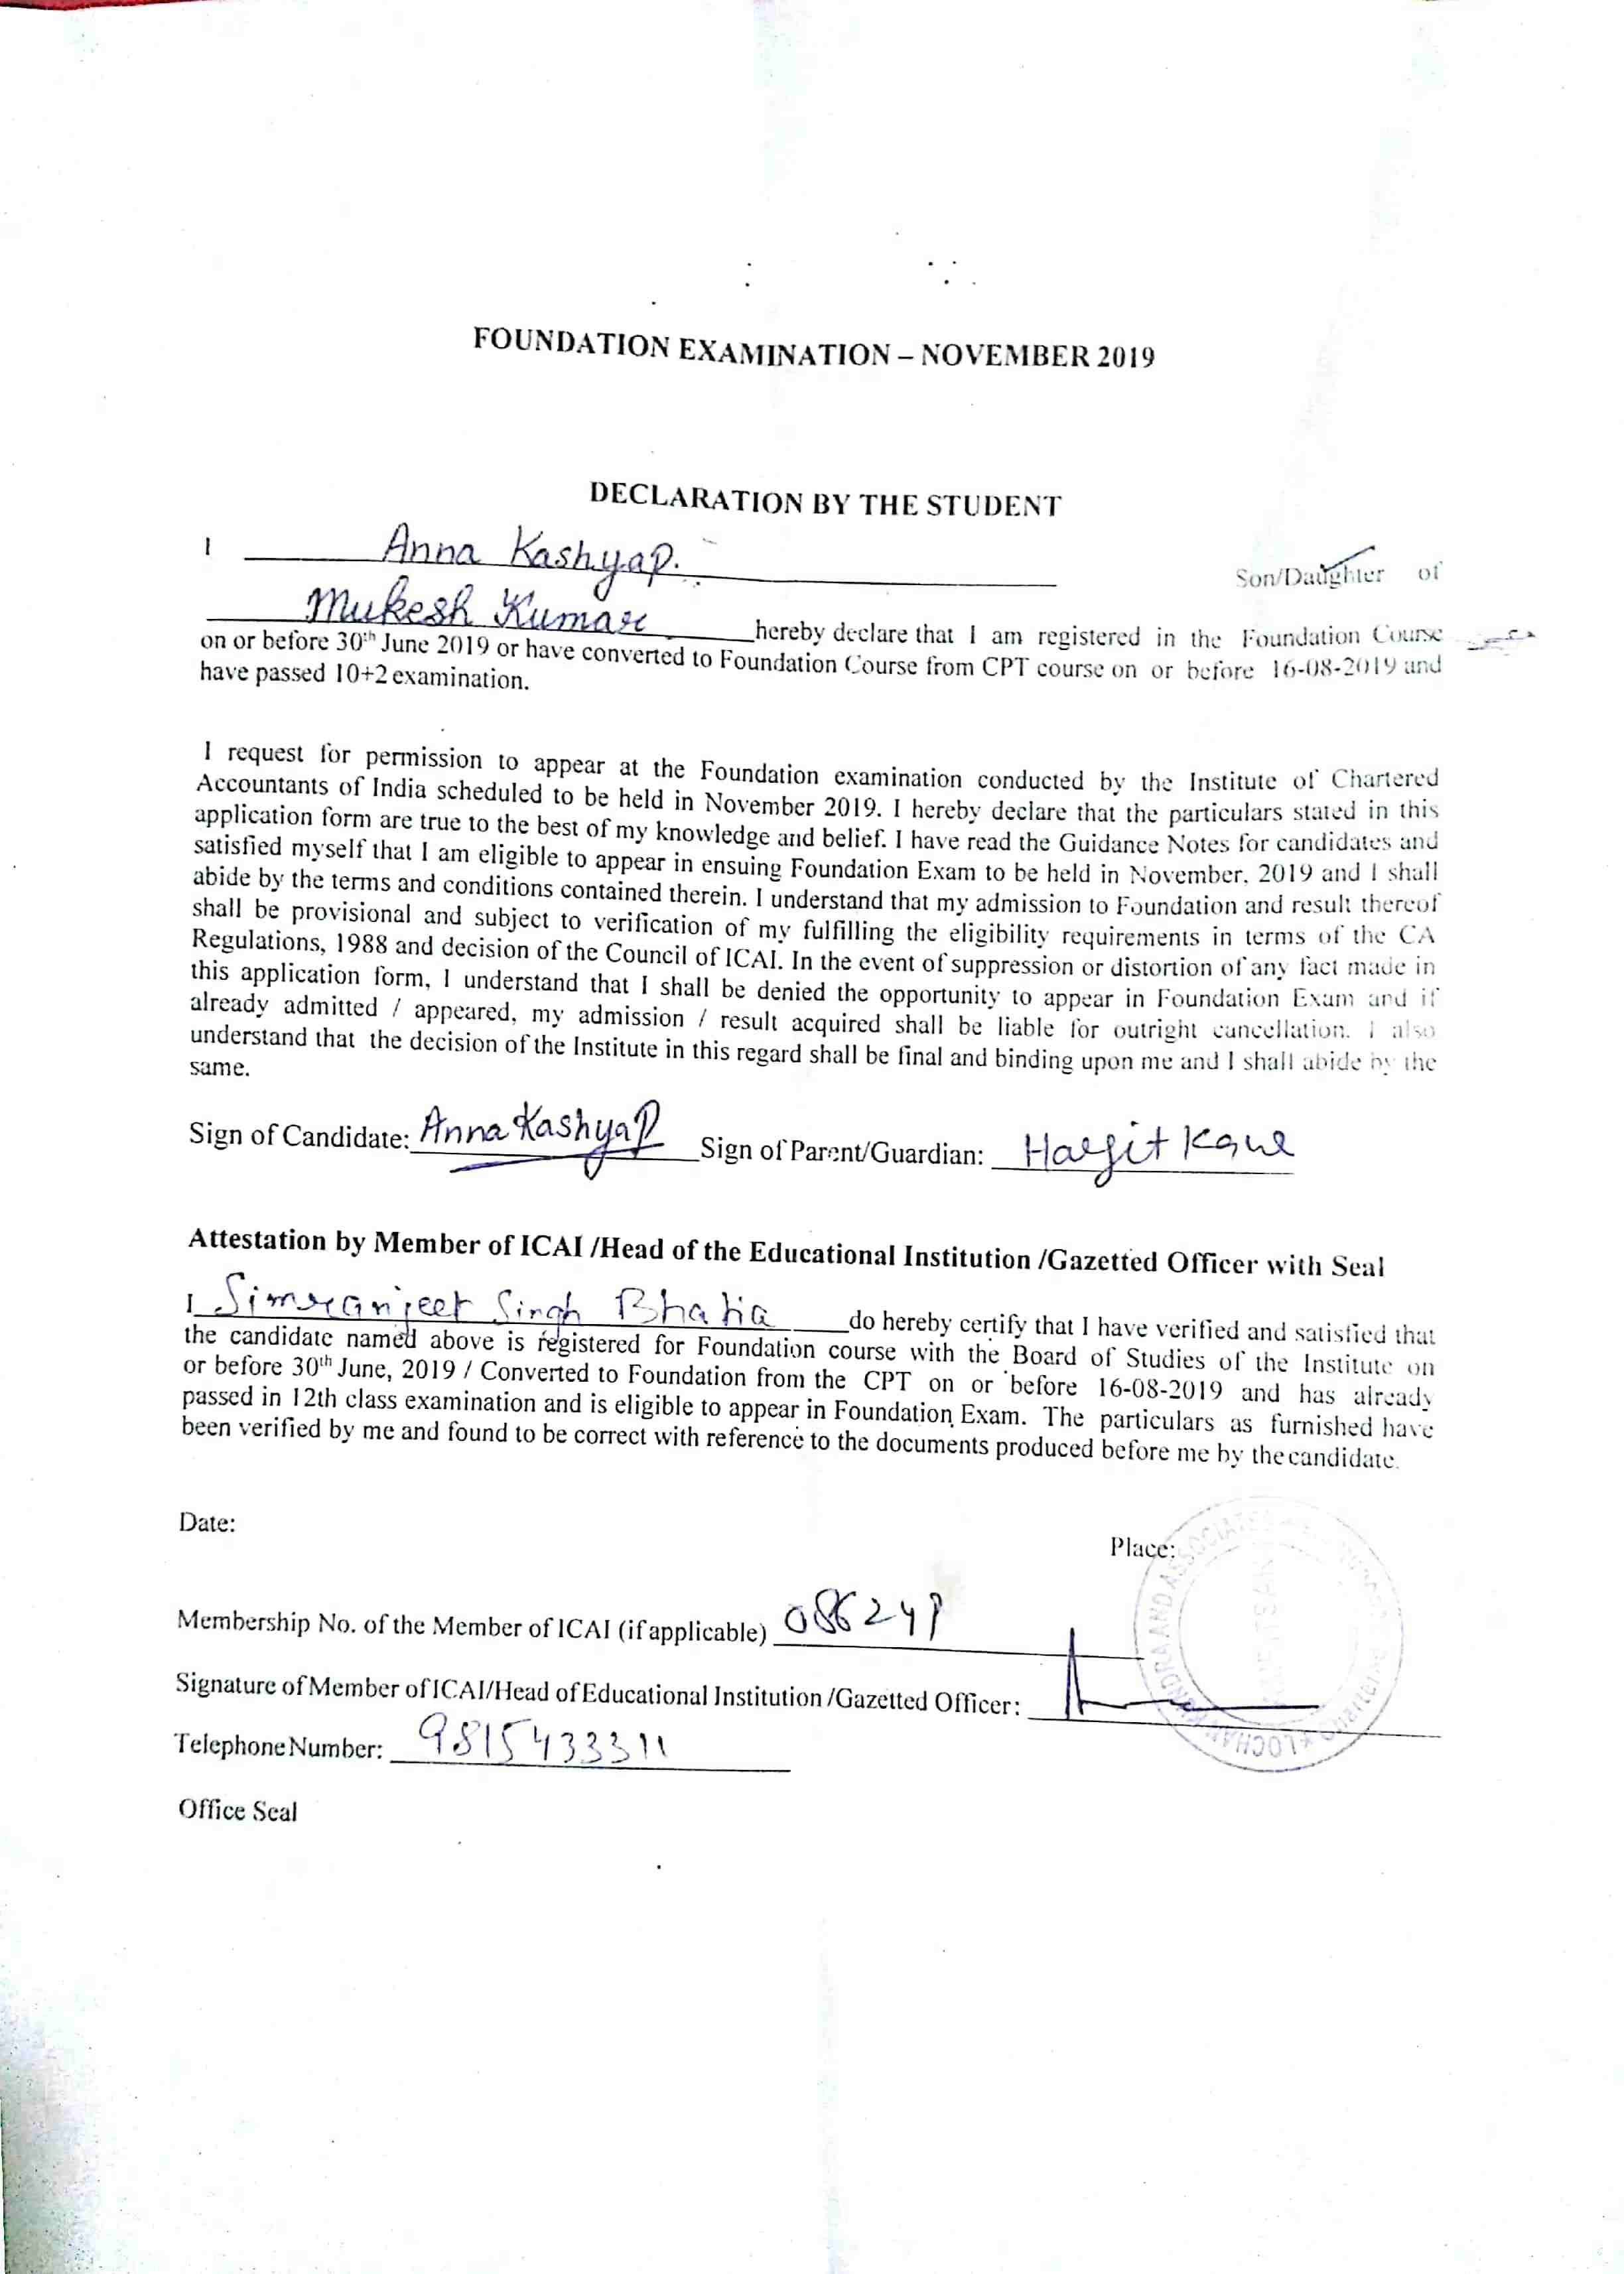 FOUNDATION EXAMINATION – NOVEMBER 2019
DECLARATION BY THE STUDENT
I Anna Kashyap. Son/Daughter of
Mukesh Kumar hereby declare that I am registered in the Foundation Course
on or before 30th June 2019 or have converted to Foundation Course from CPT course on or before 16-08-2019 and
have passed 10+2 examination.
I request for permission to appear at the Foundation examination conducted by the Institute of Chartered
Accountants of India scheduled to be held in November 2019. I hereby declare that the particulars stated in this
application form are true to the best of my knowledge and belief. I have read the Guidance Notes for candidates and
satisfied myself that I am eligible to appear in ensuing Foundation Exam to be held in November, 2019 and I shall
abide by the terms and conditions contained therein. I understand that my admission to Foundation and result thereof
shall be provisional and subject to verification of my fulfilling the eligibility requirements in terms of the CA
Regulations, 1988 and decision of the Council of ICAI. In the event of suppression or distortion of any fact made in
this application form, I understand that I shall be denied the opportunity to appear in Foundation Exam and if
already admitted / appeared, my admission / result acquired shall be liable for outright cancellation. I also
understand that the decision of the Institute in this regard shall be final and binding upon me and I shall abide by the
same.
Sign of Candidate: Anna Kashyap Sign of Parent/Guardian: Harjit Kaur
Attestation by Member of ICAI /Head of the Educational Institution /Gazetted Officer with Seal
I Simranjeet Singh Bhatia do hereby certify that I have verified and satisfied that
the candidate named above is registered for Foundation course with the Board of Studies of the Institute on
or before 30th June, 2019 / Converted to Foundation from the CPT on or before 16-08-2019 and has already
passed in 12th class examination and is eligible to appear in Foundation Exam. The particulars as furnished have
been verified by me and found to be correct with reference to the documents produced before me by the candidate.
Date:
Place:
Membership No. of the Member of ICAI (if applicable)
Signature of Member of ICAI/Head of Educational Institution /Gazetted Officer:
Telephone Number: 9815433311
Office Seal
AND ASSOCIATES